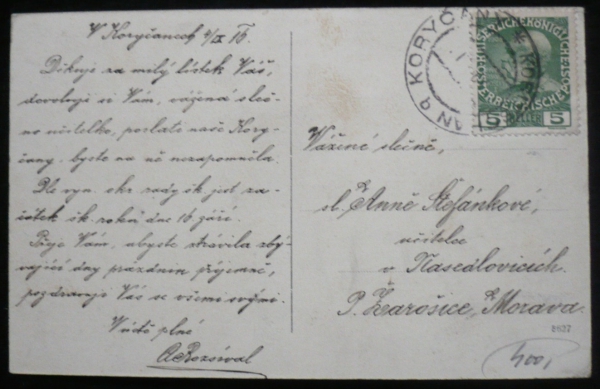 V Koryčanech 4/IX 16.
Děkuji za milý lístek Váš,
dovoluji si Vám, vážená sleč-
no učitelko, poslati naše Kory-
čany, byste na ně nezapomněla.
Dle vyn. šk. rady jest za-
čátek šk. roku dne 16. září.
Přeje Vám, abyste strávila zbý-
vající dny prázdnin příjemně,
pozdravuji Vás se všemi svými.
V úctě plné
A Rozsíval
KORYČAN
KAISERLICHE KÖNIGLICHE
ÖSTERREICHISCHE
5 HELLER 5
Vážené slečně,
sl. Anně Štefánkové,
učitelce
v Nasedlovicích.
P. Žarošice, Morava.
8627